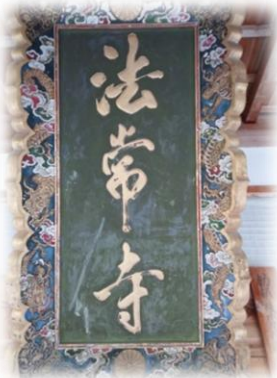 法常寺